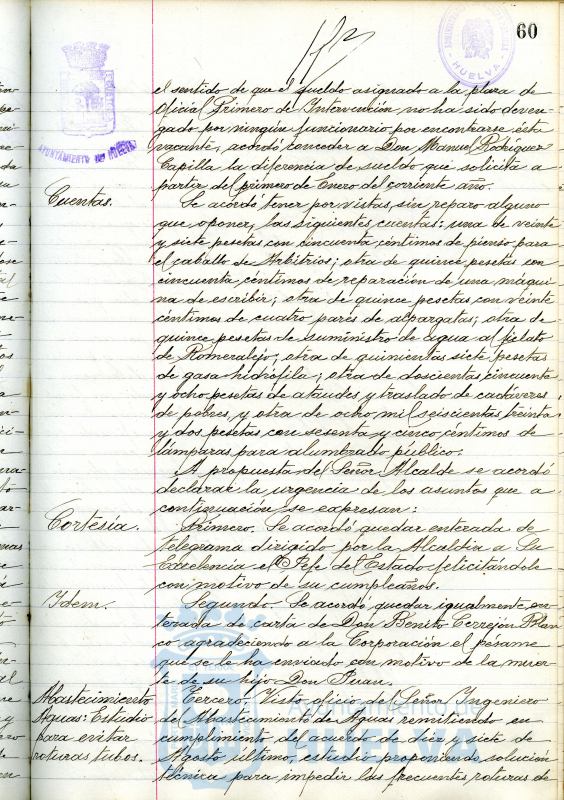 60
HUELVA
AYUNTAMIENTO DE HUELVA
el sentido de que el sueldo asignado a la plaza de
Oficial Primero de Intervención no ha sido deven-
gado por ningún funcionario por encontrarse ésta
vacante, acordó conceder a Don Manuel Rodríguez
Capilla la diferencia de sueldo que solicita a
partir del primero de Enero del corriente año.
Cuentas.
Se acordó tener por vistas, sin reparo alguno
que oponer, las siguientes cuentas: una de veinte
y siete pesetas con cincuenta céntimos de pienso para
el caballo de Arbitrios; otra de quince pesetas con
cincuenta céntimos de reparación de una máqui-
na de escribir; otra de quince pesetas con veinte
céntimos de cuatro pares de alpargatas; otra de
quince pesetas de suministro de agua al fielato
de Romeralejo; otra de quinientas siete pesetas
de gasa hidrófila; otra de doscientas cincuenta
y ocho pesetas de ataudes y traslado de cadáveres
de pobres, y otra de ocho mil seiscientas treinta
y dos pesetas con sesenta y cinco céntimos de
lámparas para alumbrado público.
A propuesta del Señor Alcalde se acordó
declarar la urgencia de los asuntos que a
continuación se expresan:
Cortesía.
Primero. Se acordó quedar enterada de
telegrama dirigido por la Alcaldia a Su
Excelencia el Jefe del Estado felicitándole
con motivo de su cumpleaños.
Idem.
Segundo. Se acordó quedar igualmente en-
terada de carta de Don Benito Cerrejón Blan-
co agradeciendo a la Corporación el pésame
que se le ha enviado con motivo de la muer-
te de su hijo Don Juan.
Abastecimiento
Aguas: Estudio
para evitar
roturas tubos.
Tercero. Visto oficio del Señor Ingeniero
de Abastecimiento de Aguas remitiendo en
cumplimiento del acuerdo de diez y siete de
Agosto último, estudio proponiendo solución
técnica para impedir las frecuentes roturas de
Ayuntamiento de
HUELVA